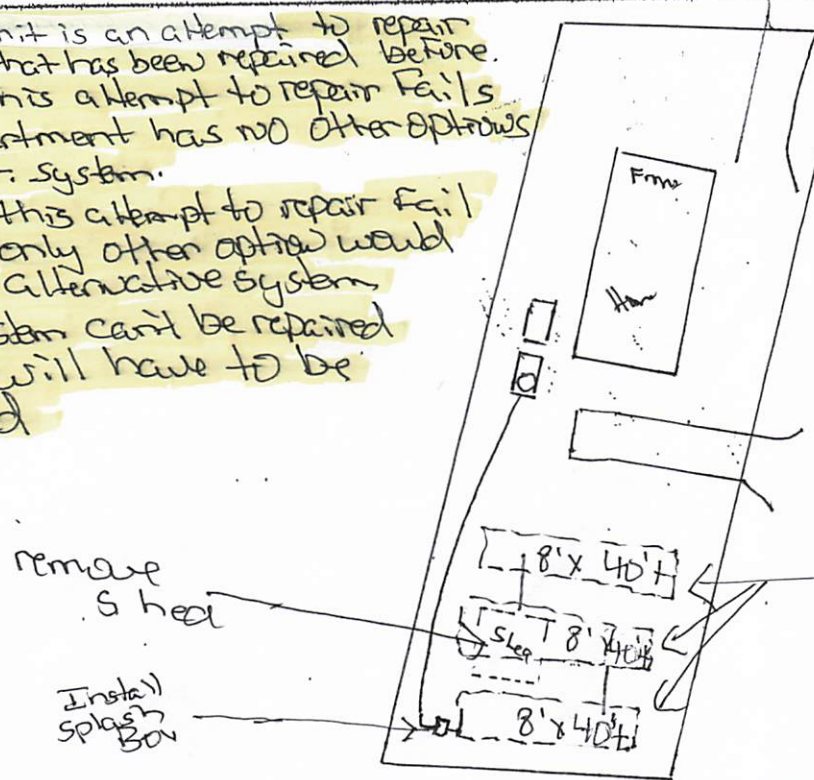 nit is an attempt to repair
hat has been repaired before.
his attempt to repair Fails
rtment has no other options
r. system.
this attempt to repair Fail
only other option would
alternative system
stem can't be repaired
will have to be
d
remove
Shed
Install
Splash
Box
8' x 40'+
8' x 40'+
8' x 40'+